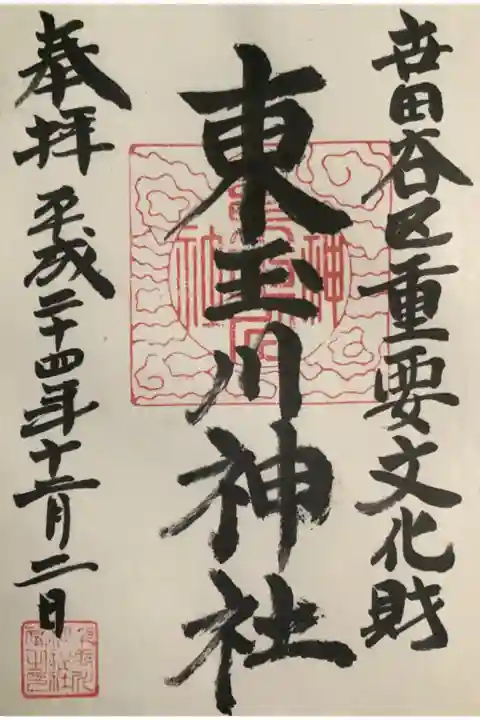 世田谷区重要文化財
東玉川神社
奉拝
平成二十四年十二月二日